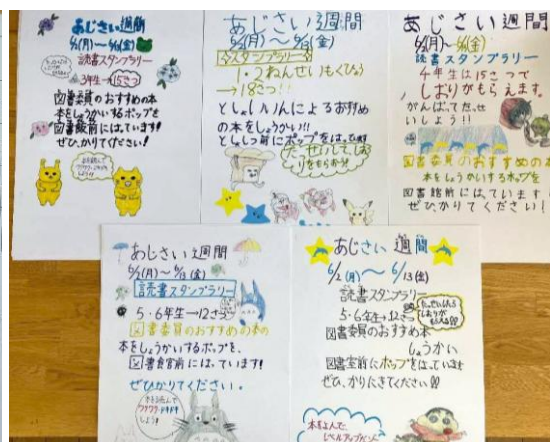 あじさい週間
6/2(月)〜6/13(金)
読書スタンプラリー
3年生→15さつ
図書委員のおすすめの本
本をしょうかいするポップを
図書館前にはっています!
ぜひ、かりてください!
あじさい週間
6/2(月)〜6/13(金)
スタンプラリー
1・2ねんせいもくひょう
→18こっ!!
としょいいんによるおすすめ
の本をしょうかい!!
としょしつ前にポップをはっています
たっせいしてしお
りをもらおう!
あじさい週間
6/2(月)〜6/13(金)
読書スタンプラリー
4年生は15さつで
しおりがもらえます。
がんばってたっせ
いしよう!!
図書委員のおすすめの
本をしょうかいするポップを
図書館前にはっています
ぜひかりてください!
あじさい週間
6/2(月)〜6/13(金)
読書スタンプラリー
5・6年生→12さつ
図書委員のおすすめの本の
本をしょうかいするポップを、
図書館前にはっています!
ぜひかりてください。
本を読んで
ワクワク・ドキドキ
しよう!
あじさい週間
6/2(月)〜6/13(金)
読書スタンプラリー
5・6年生→12さつ
たっせいしたら
しおりが
もらえる!!
図書委員のおすすめ本
しょうかい
図書室前にポップをはっています
ぜひ、かりにきてください!!
本をよんで、
レベルアップだゾ〜